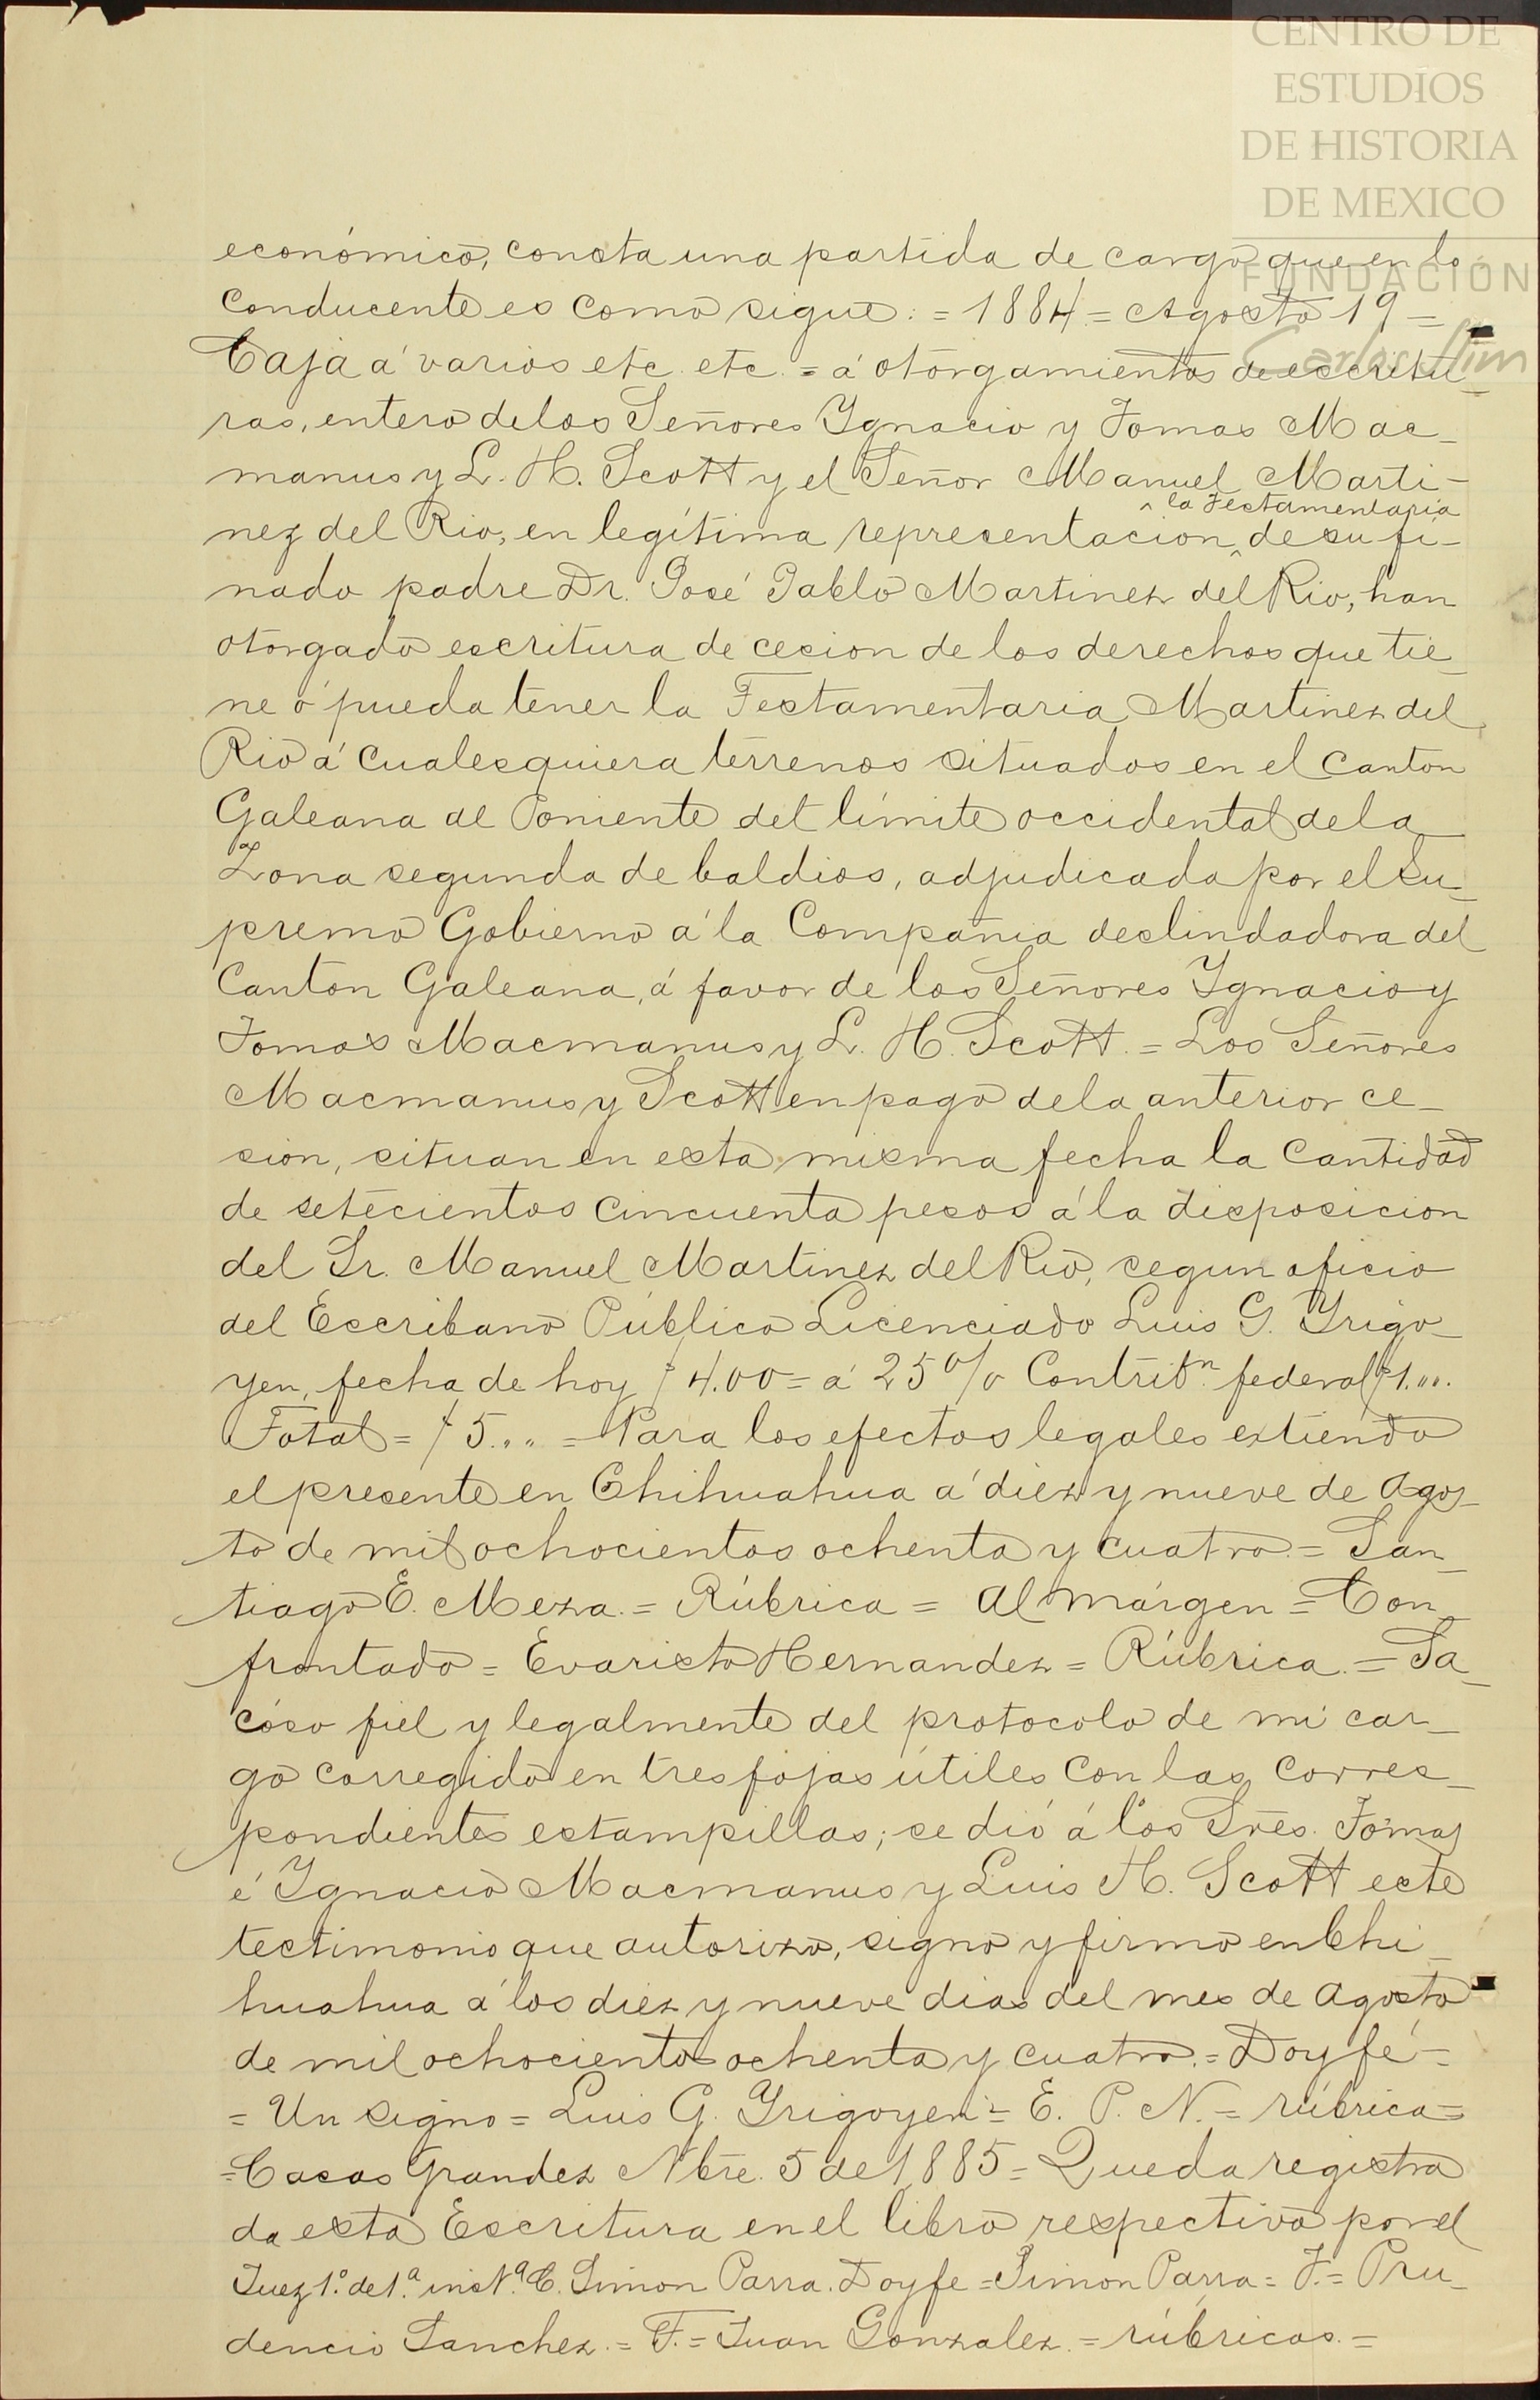 CENTRO DE
ESTUDIOS
DE HISTORIA
DE MEXICO
FUNDACIÓN
Carlos Slim
económico, consta una partida de cargo que en lo
conducente es como sigue: = 1884 = Agosto 19 =
Caja á varios etc. etc. = á otorgamientos de escritu_
ras, entero de los Señores Ygnacio y Tomas Mac_
manus y L. H. Scott y el Señor Manuel Marti-
^ la Testamentaria
nez del Rio, en legítima representacion ^ de su fi-
nado padre Dr. José Pablo Martinez del Rio, han
otorgado escritura de cesion de los derechos que tie_
ne ó pueda tener la Testamentaria Martinez del
Rio á cualesquiera terrenos situados en el Canton
Galeana al Poniente del límite occidental de la
Zona segunda de baldios, adjudicada por el Su_
premo Gobierno á la Compañia deslindadora del
Canton Galeana, á favor de los Señores Ygnacio y
Tomas Macmanus y L. H. Scott. = Los Señores
Macmanus y Scott en pago de la anterior ce_
sion, situan en esta misma fecha la cantidad
de setecientos cincuenta pesos á la disposicion
del Sr. Manuel Martinez del Rio, segun oficio
del Escribano Público Licenciado Luis G. Yrigo_
yen, fecha de hoy $ 4.00 = á 25 % Contribn. federal $ 1.,,.
Total = $ 5.,,. = Para los efectos legales extiendo
el presente en Chihuahua á diez y nueve de Agos_
to de mil ochocientos ochenta y cuatro. = San_
tiago E. Meza. = Rúbrica = Al márgen = Con_
frontado = Evaristo Hernandez = Rúbrica. = Sa_
cóse fiel y legalmente del protocolo de mi car_
go corregido en tres fojas útiles con las corres_
pondientes estampillas; se dió á los Sres. Tomas
é Ygnacio Macmanus y Luis H. Scott este
testimonio que autorizo, signo y firmo en Chi_
huahua á los diez y nueve dias del mes de Agosto
de mil ochocientos ochenta y cuatro. = Doy fé =
= Un signo = Luis G. Yrigoyen = E. P. N. = rúbrica =
= Casas Grandes Nbre. 5 de 1885 = Queda registra
da esta Escritura en el libro respectivo por el
Juez 1º. de 1.ª inst.ª C. Simon Parra. Doy fe = Simon Parra = T. = Pru_
dencio Sanchez. = T. = Juan Gonzalez. = rúbricas. =